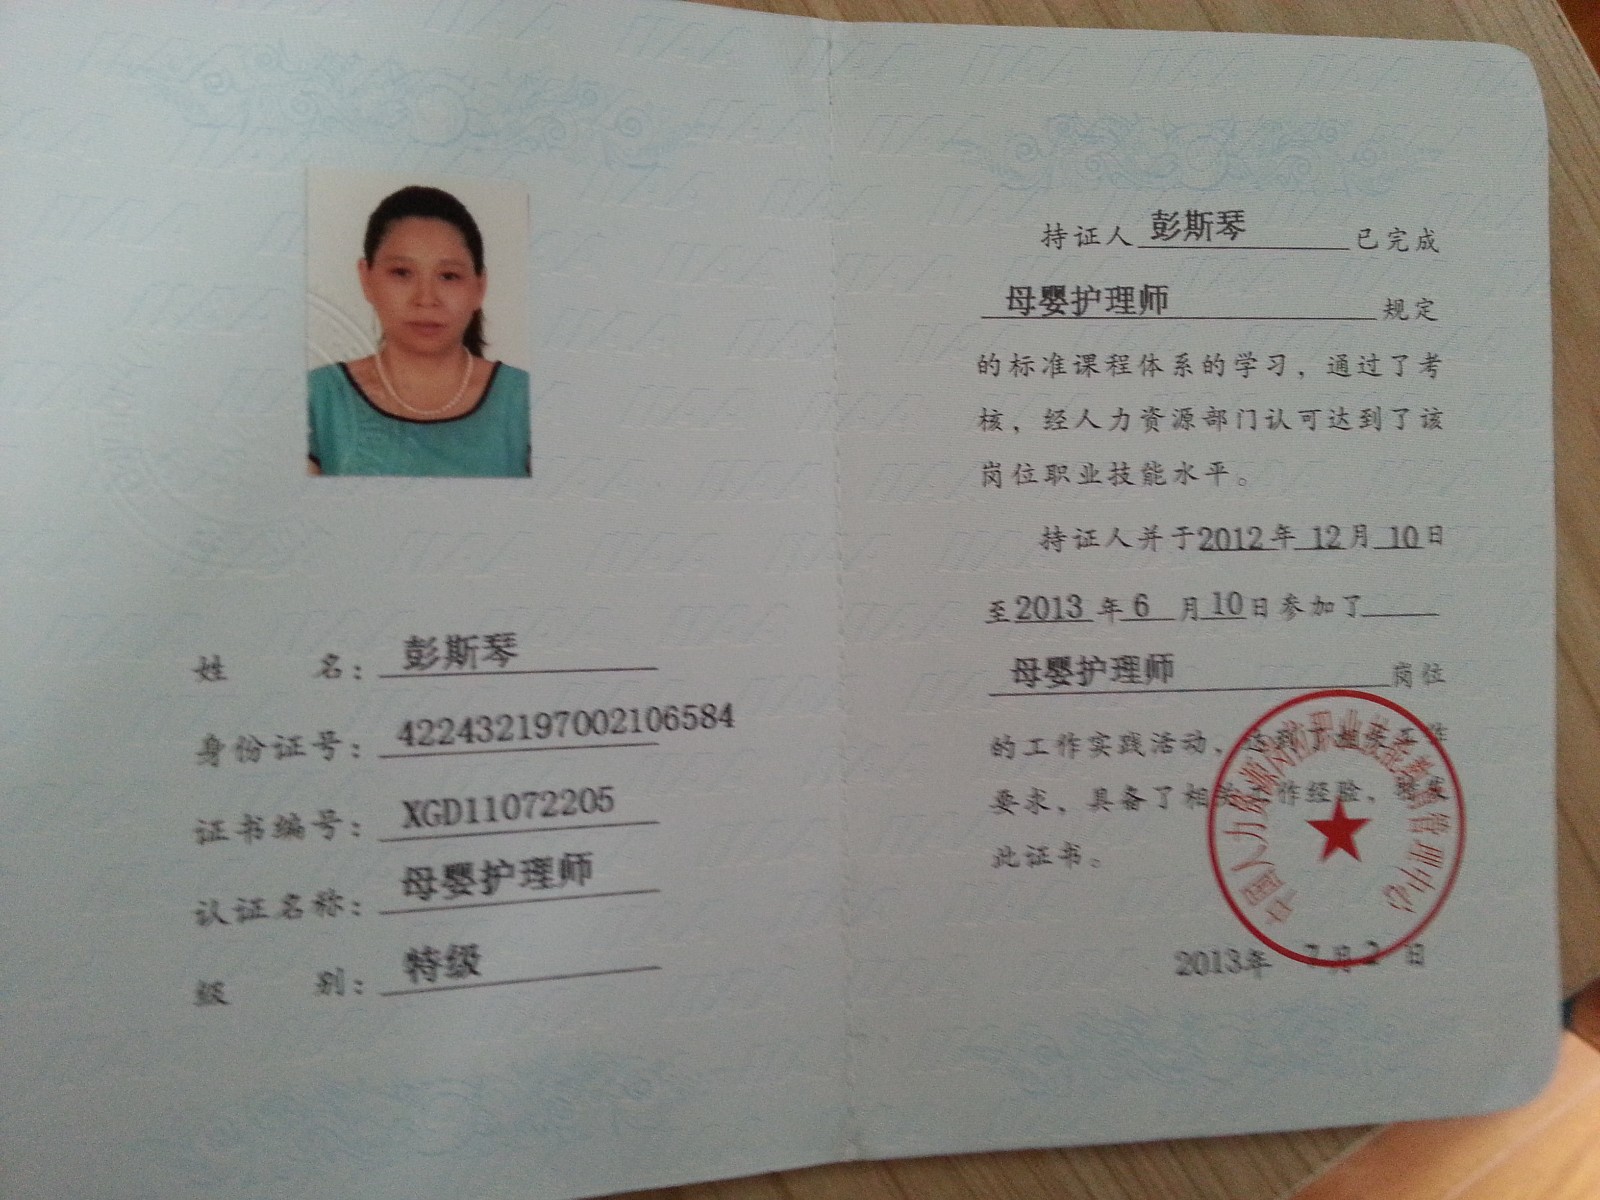 姓名：彭斯琴
身份证号：422432197002106584
证书编号：XGD11072205
认证名称：母婴护理师
级别：特级
持证人彭斯琴已完成
母婴护理师规定
的标准课程体系的学习，通过了考
核，经人力资源部门认可达到了该
岗位职业技能水平。
持证人并于2012年12月10日
至2013年6月10日参加了
母婴护理师岗位
的工作实践活动，达到了工作
要求，具备了相关工作经验，特发
此证书。
2013年7月2日